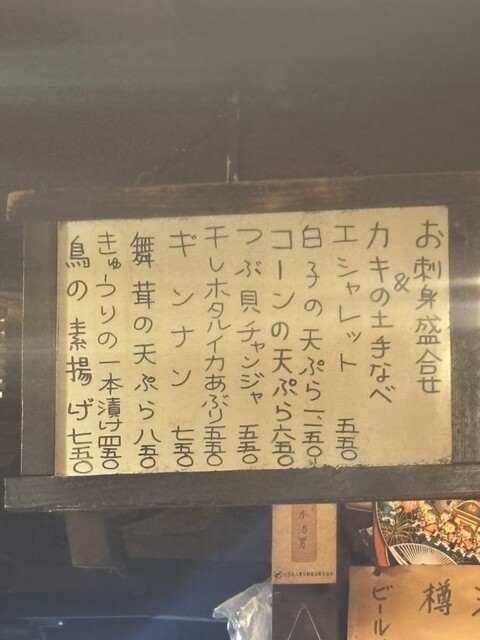 お刺身盛合せ
&
カキの土手なべ
エシャレット 五五〇
白子の天ぷら 一、一五〇
コーンの天ぷら 六五〇
つぶ貝チャンジャ 五五〇
干しホタルイカあぶり 五五〇
ギンナン 七五〇
舞茸の天ぷら 八五〇
きゅうりの一本漬け 四五〇
鳥の素揚げ 七五〇
樽
ビール